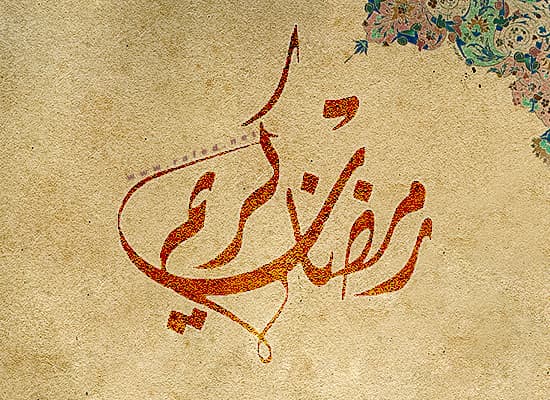 رمضان كريم
www.rafed.net